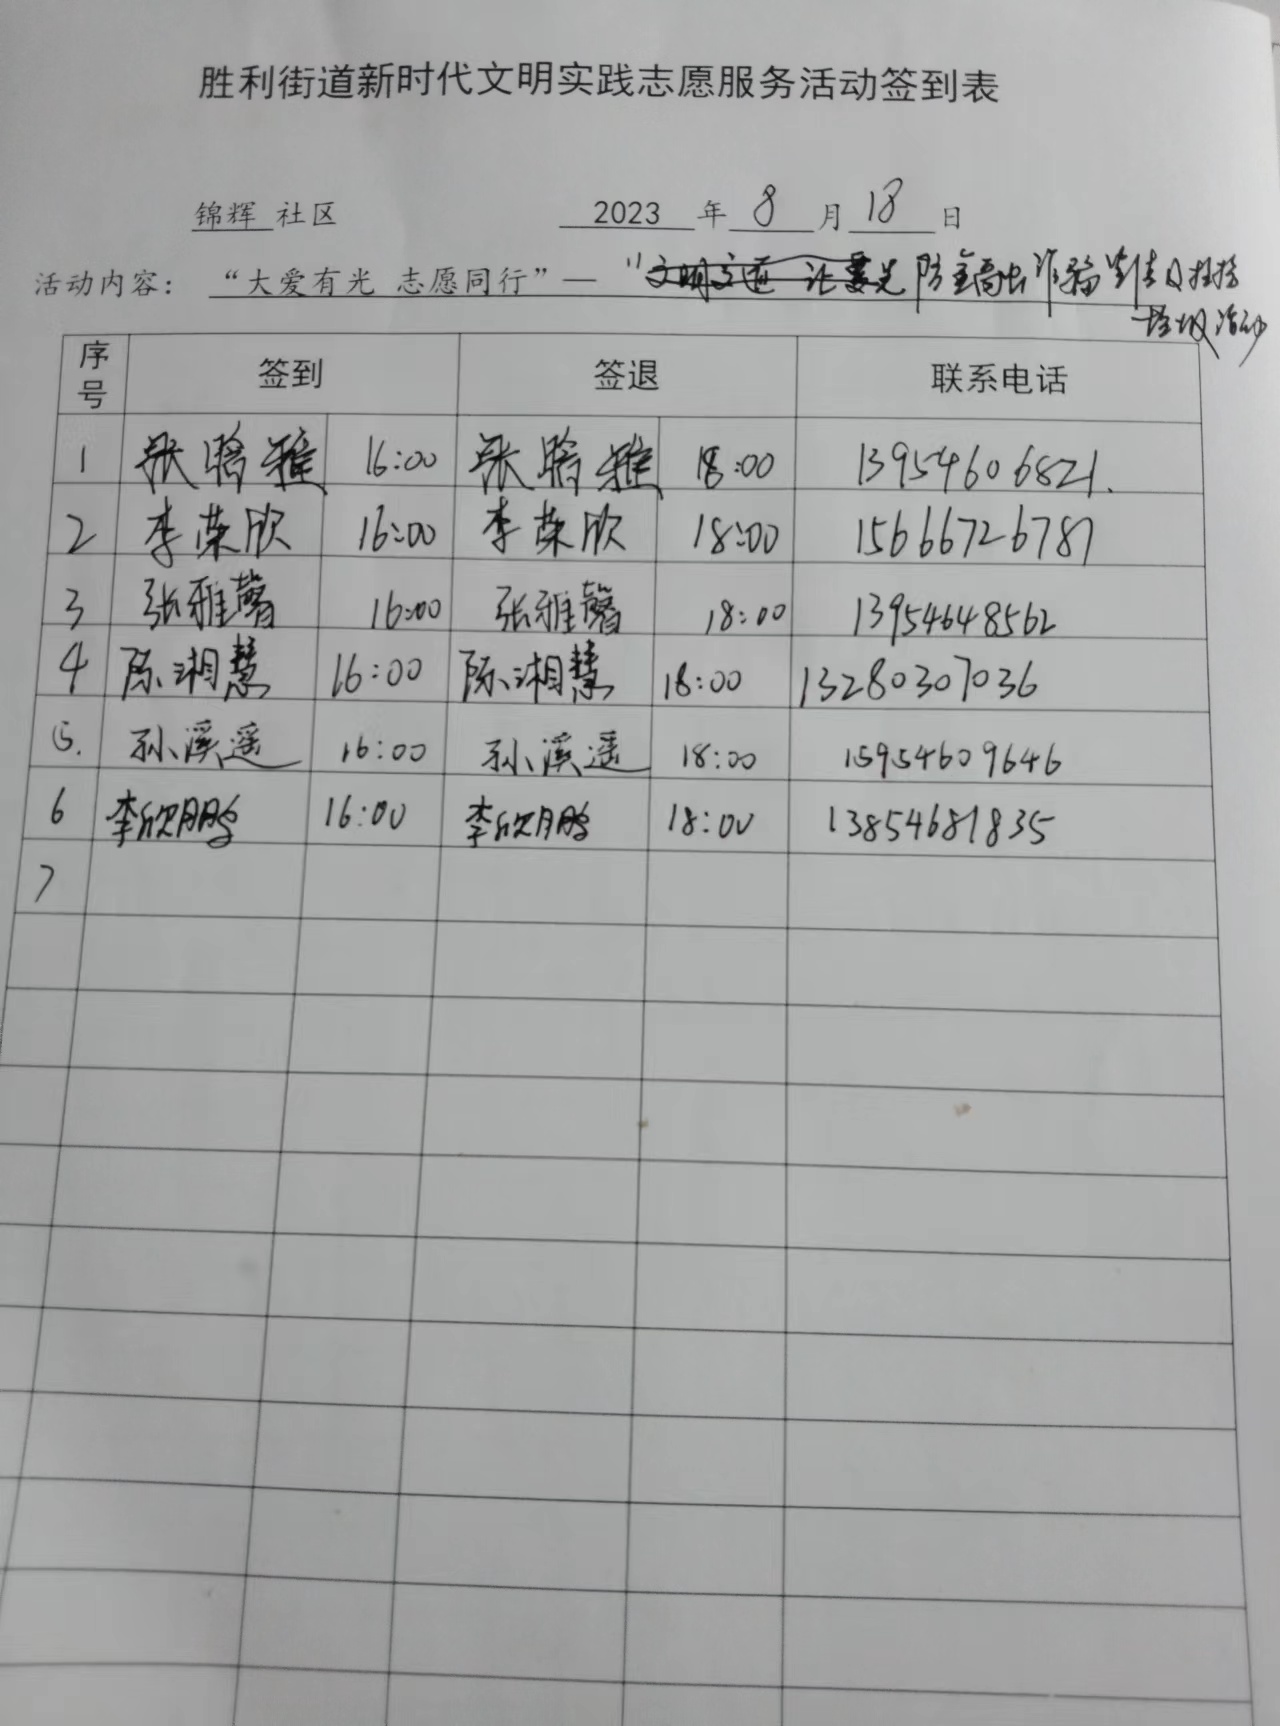 胜利街道新时代文明实践志愿服务活动签到表
锦辉 社区 2023 年 8 月 18 日
活动内容： “大爱有光 志愿同行”— “文明交通 让 光 防 诈骗宣传及捡拾
垃圾活动
序号 签到 签退 联系电话
1 张晗雅 16:00 张晗雅 18:00 13954606821.
2 李荣欣 16:00 李荣欣 18:00 15666726787
3 张雅馨 16:00 张雅馨 18:00 13954648562
4 陈湘慧 16:00 陈湘慧 18:00 13280307036
5. 孙溪遥 16:00 孙溪遥 18:00 15954609646
6 李欣鹏 16:00 李欣鹏 18:00 13854681835
7